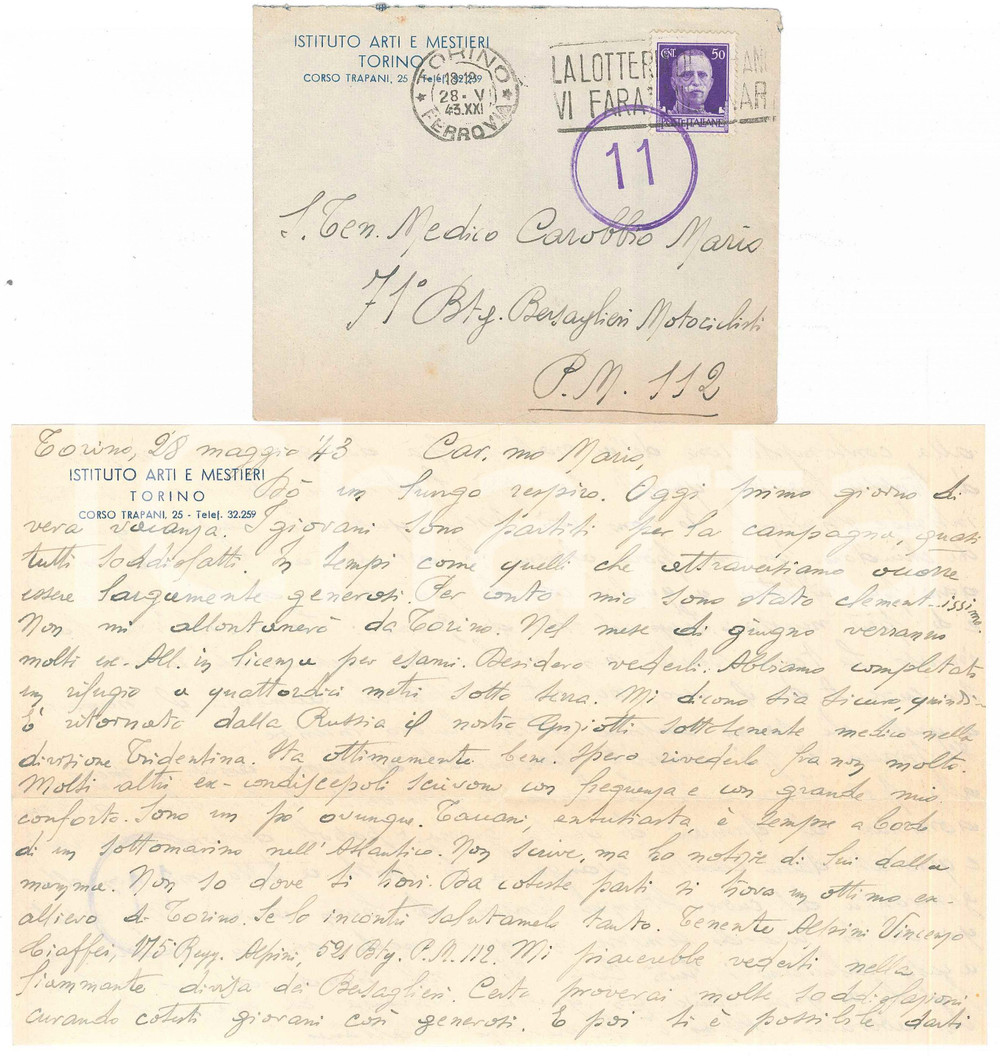 ISTITUTO ARTI E MESTIERI
TORINO
CORSO TRAPANI, 25 - Telef. 32.259
TORINO
18-19
28-V
43.XXI
FERROVIA
LA LOTTERIA
VI FARA'
CNT. 50
POSTE ITALIANE
11
S. Ten. Medico Carobbio Mario
71° Btg. Bersaglieri Motociclisti
P.M. 112
Torino, 28 maggio '43 Car.mo Mario,
ISTITUTO ARTI E MESTIERI
TORINO
CORSO TRAPANI, 25 - Telef. 32.259
Dò un lungo respiro. Oggi primo giorno di
vera vacanza. I giovani sono partiti per la campagna, quasi
tutti soddisfatti. In tempi come quelli che attraversiamo occorre
essere largamente generosi. Per conto mio sono stato clementissimo.
Non mi allontanerò da Torino. Nel mese di giugno verranno
molti ex-All. in licenza per esami. Desidero vederli. Abbiamo completato
un rifugio a quattordici metri sotto terra. Mi dicono sia sicuro, quindi-
È ritornato dalla Russia il nostro Grigiotti sottotenente medico nella
divisione Tridentina. Sta ottimamente bene. Spero rivederlo fra non molto.
Molti altri ex-condiscepoli scrivono con frequenza e con grande mio
conforto. Sono un pò ovunque. entusiasta, è sempre a bordo
di un sottomarino nell'Atlantico. Non scrive, ma ho notizie di lui dalla
mamma. Non so dove ti trovi. Da coteste parti si trova un ottimo ex-
allievo di Torino. Se lo incontri salutamelo tanto. Tenente Alpini Vincenzo
Ciaffei, 175 Regg. Alpini, 521 Btg. P.M. 112. Mi piacerebbe vederti nella
fiammante divisa dei Bersaglieri. Certo proverai molte soddisfazioni
curando cotesti giovani così generosi. E poi ti è possibile darti